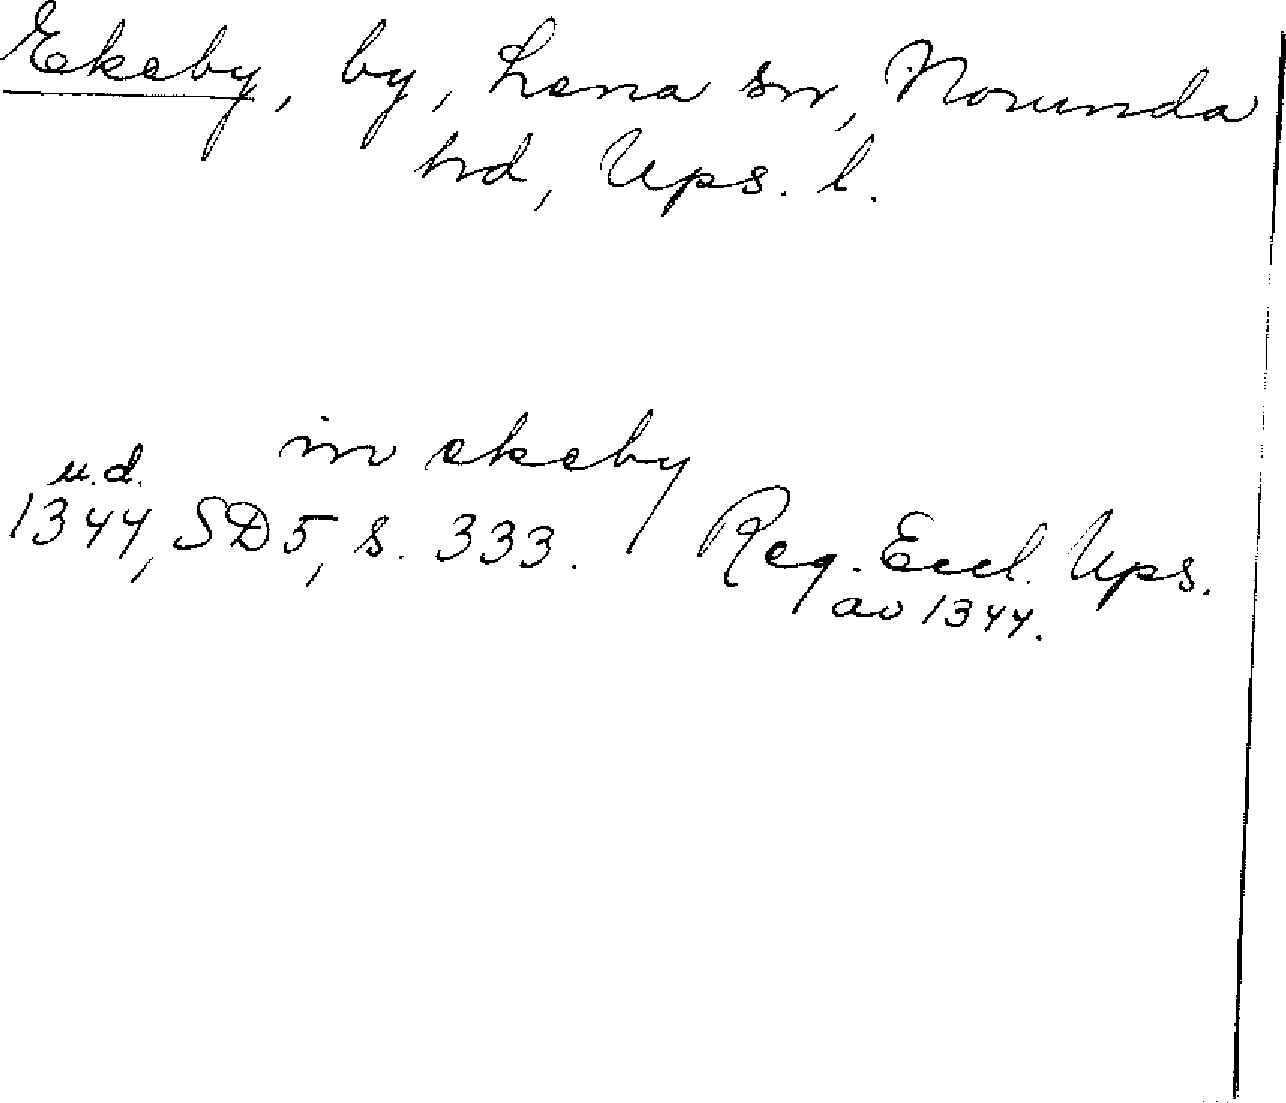 Ekeby, by, Lena sn, Norunda
hd, Ups. l.
in ekeby
u.d.
1344, SD 5, s. 333. Reg. Eccl. Ups.
av 1344.